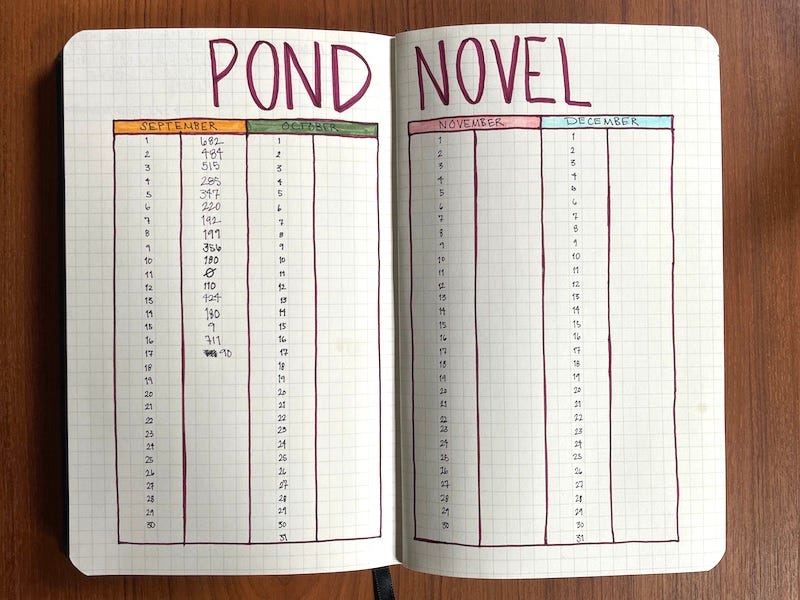 POND
SEPTEMBER OCTOBER
1 682 1
2 484 2
3 515 3
4 285 4
5 347 5
6 220 6
7 192 7
8 199 8
9 356 9
10 180 10
11 Ø 11
12 110 12
13 424 13
14 180 14
15 9 15
16 16
17 90 17
18 18
19 19
20 20
21 21
22 22
23 23
24 24
25 25
26 26
27 27
28 28
29 29
30 30
31
NOVEL
NOVEMBER DECEMBER
1 1
2 2
3 3
4 4
5 5
6 6
7 7
8 8
9 9
10 10
11 11
12 12
13 13
14 14
15 15
16 16
17 17
18 18
19 19
20 20
21 21
22 22
23 23
24 24
25 25
26 26
27 27
28 28
29 29
30 30
31